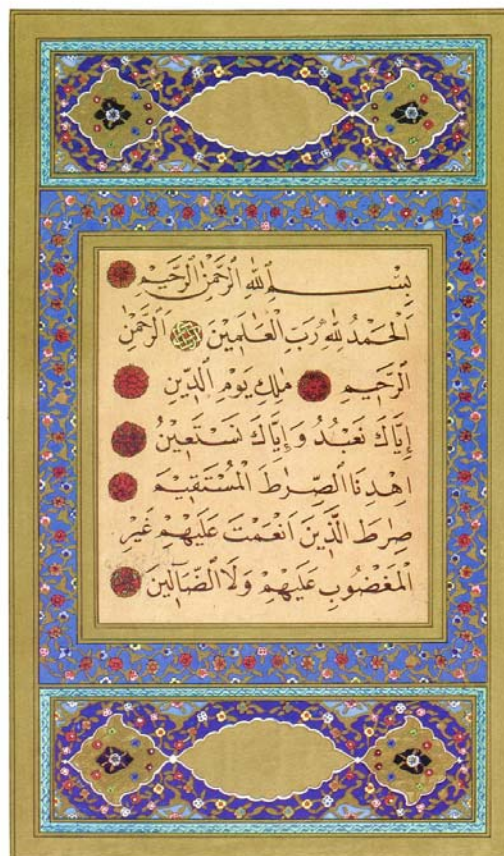 بِسْمِ اللهِ الرَّحْمٰنِ الرَّحِيْمِ
اَلْحَمْدُ لِلهِ رَبِّ الْعَالَمِيْنَ اَلرَّحْمٰنِ
الرَّحِيْمِ مٰلِكِ يَوْمِ الدِّيْنِ
إِيَّاكَ نَعْبُدُ وَإِيَّاكَ نَسْتَعِيْنُ
اِهْدِنَا الصِّرٰطَ الْمُسْتَقِيْمَ
صِرٰطَ الَّذِيْنَ اَنْعَمْتَ عَلَيْهِمْ غَيْرِ
الْمَغْضُوْبِ عَلَيْهِمْ وَلَا الضَّآلِّيْنَ